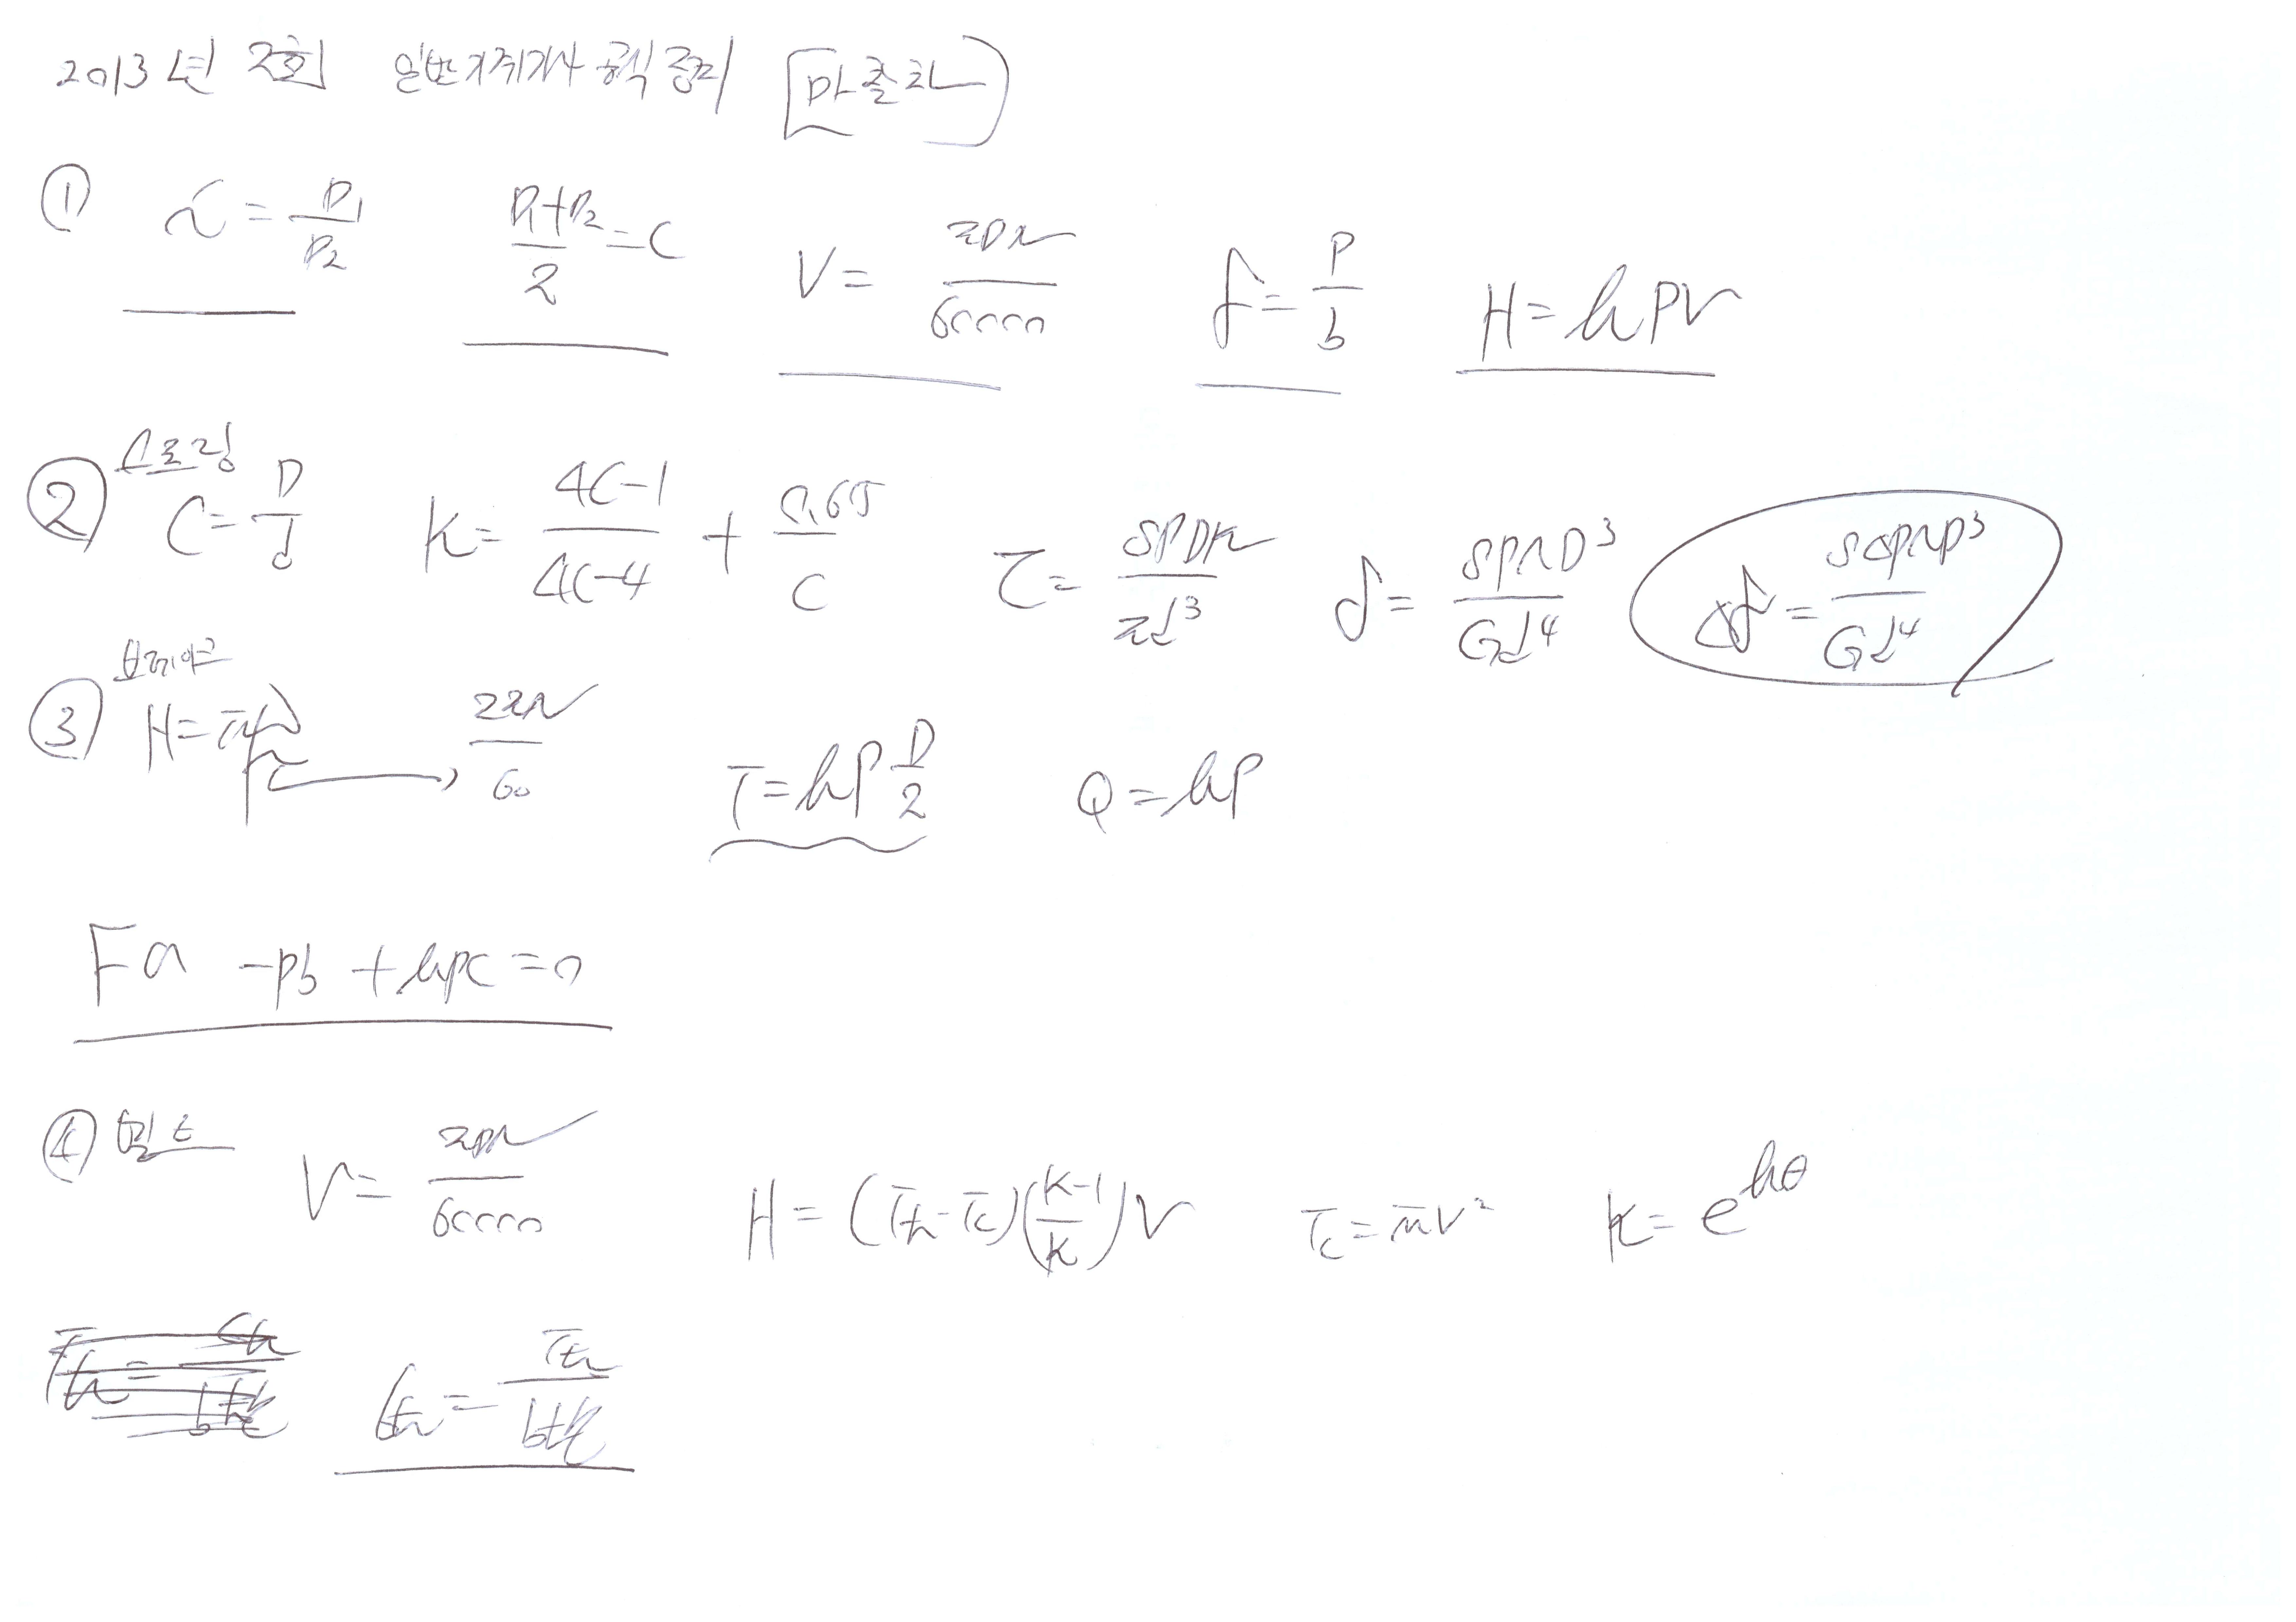 2013년 2회 일반기계기사 공식 정리 [마찰차]
① i = D₁/D₂ (D₁+D₂)/2 = C V = πDN/60000 f = P/b H = μPV
② 스프링 C = D/d K = (4C-1)/(4C-4) + 0.615/C τ = 8PDK/πd³ δ = 8PnD³/Gd⁴ Δδ = 8ΔPnD³/Gd⁴
③ 브레이크 H = Tω → 2πN/60 T = μP D/2 Q = μP
Fa - Pb + μPc = 0
④ 벨트 V = πDN/60000 H = (Tt - Tc)((K-1)/K)V Tc = mV² K = e^μθ
σt = Tt/btη